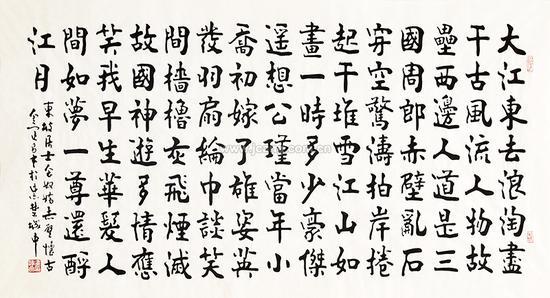 大江東去浪淘盡
千古風流人物故
壘西邊人道是三
國周郎赤壁亂石
穿空驚濤拍岸捲
起千堆雪江山如
畫一時多少豪傑
遥想公瑾當年小
喬初嫁了雄姿英
發羽扇綸巾談笑
間檣櫓灰飛煙滅
故國神遊多情應
笑我早生華髮人
間如夢一尊還酹
江月
東坡居士念奴嬌赤壁懷古